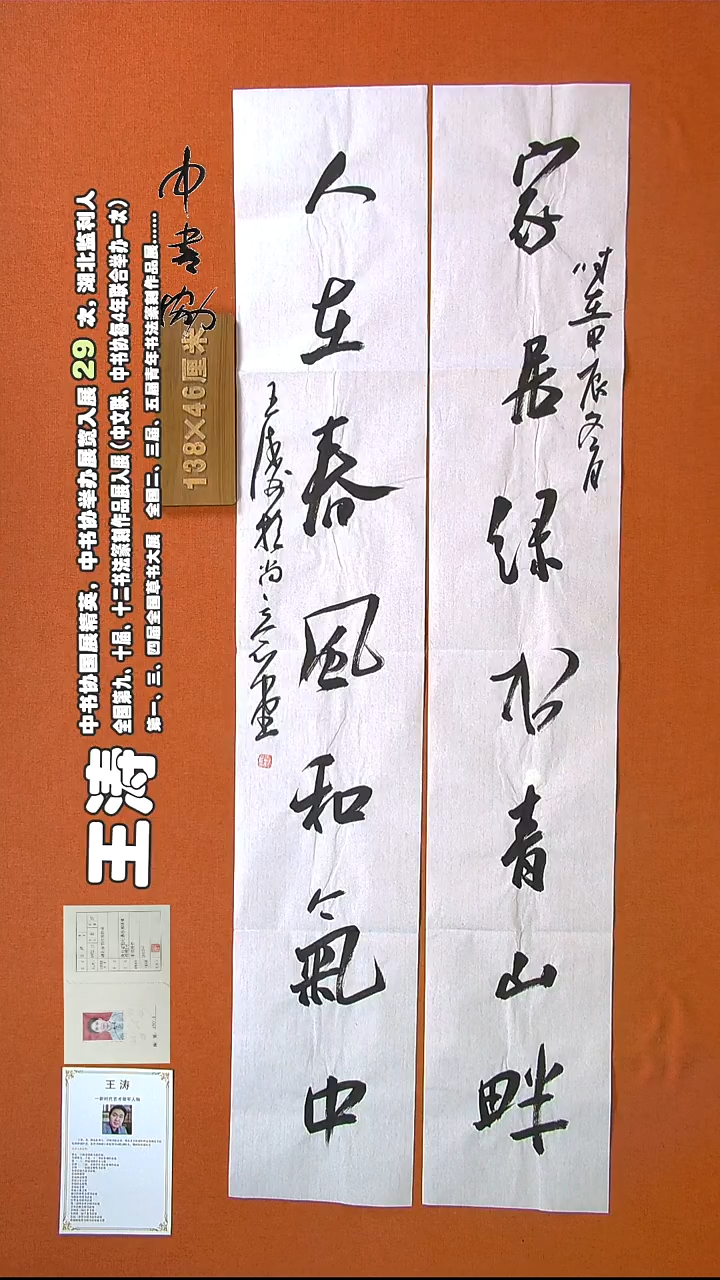 家居绿水青山畔
时在甲辰冬月
人在春风和氣中
王涛书于尚意堂
中书协
138×46厘米
中书协国展精英,中书协举办展览入展29次,湖北监利人
全国第九、十届、十二书法篆刻作品展入展(中文联、中书协每4年联合举办一次)
第一、三、四届全国草书大展 全国二、三届、五届青年书法篆刻作品展......
王涛
王涛
—新时代艺术领军人物